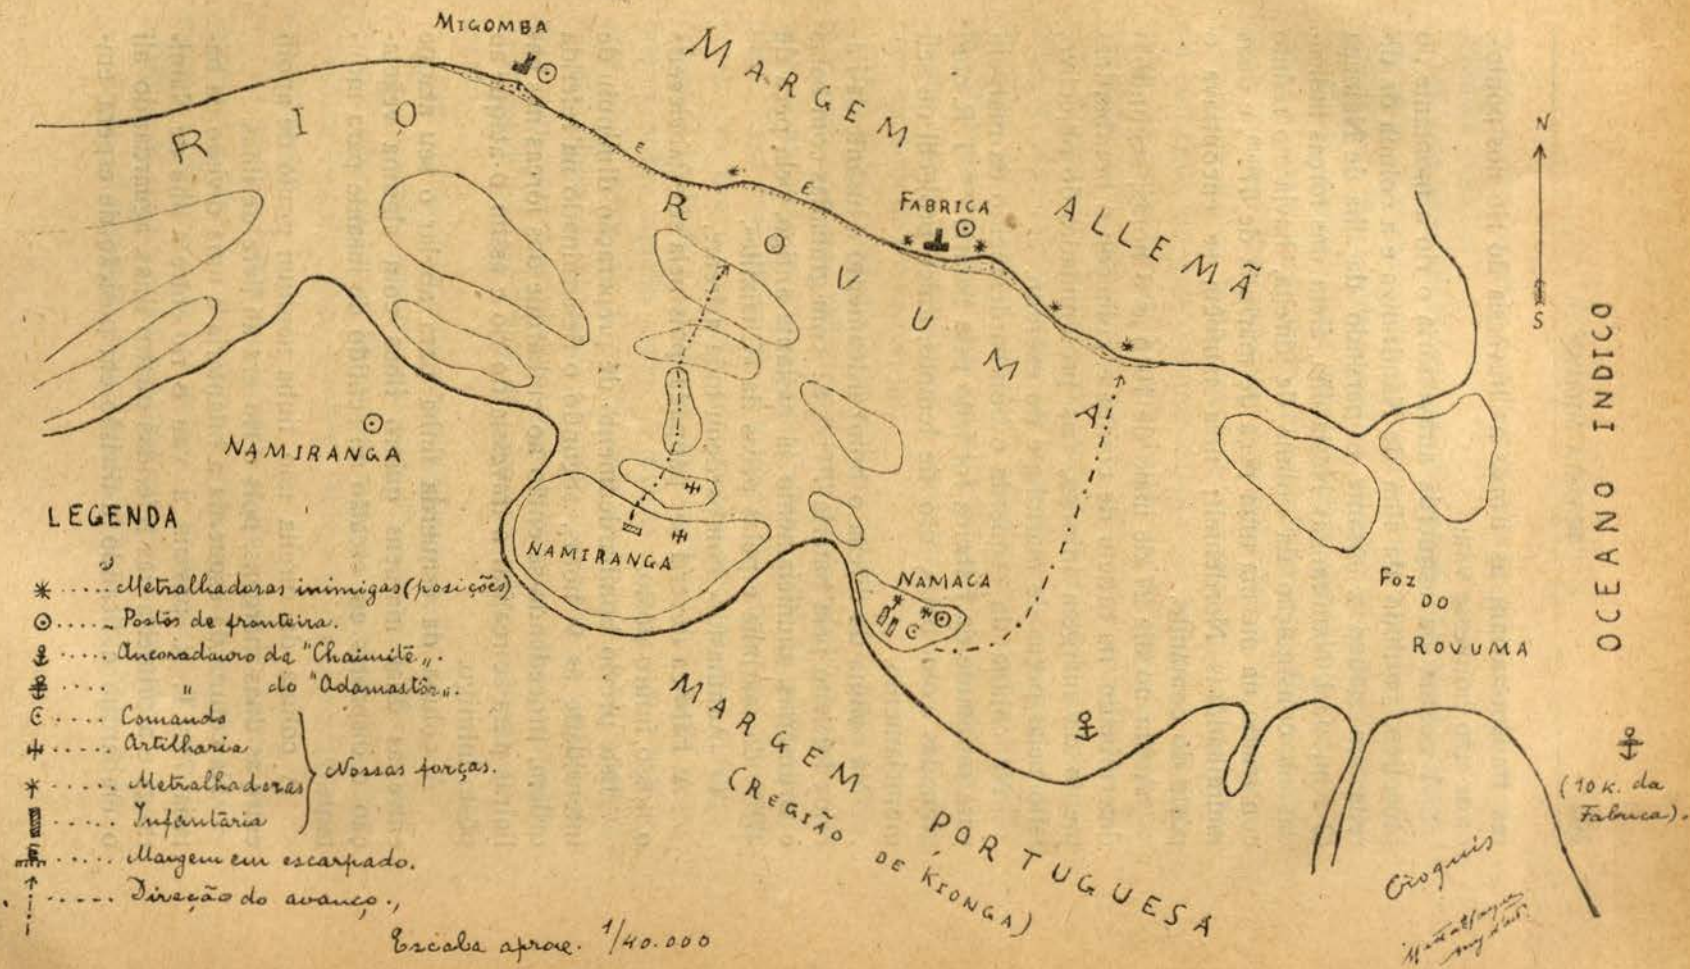 MIGOMBA
MARGEM ALLEMÃ
RIO ROVUMA
FABRICA
N
S
E
E
OCEANO INDICO
NAMIRANGA
NAMIRANGA
NAMACA
FOZ
DO
ROVUMA
MARGEM PORTUGUESA
(REGIÃO DE KIONGA)
(10 K. da
Fabrica).
LEGENDA
..... Metralhadoras inimigas (posições)
..... Postos de fronteira.
..... Ancoradouro da "Chaimite".
.... " do "Adamastôr".
C .... Comando
..... Artilharia
..... Metralhadoras
..... Infantaria
Nossas forças.
E ..... Margem em escarpado.
..... Direção do avanço.
Escala aprox. 1/40.000
Croquis